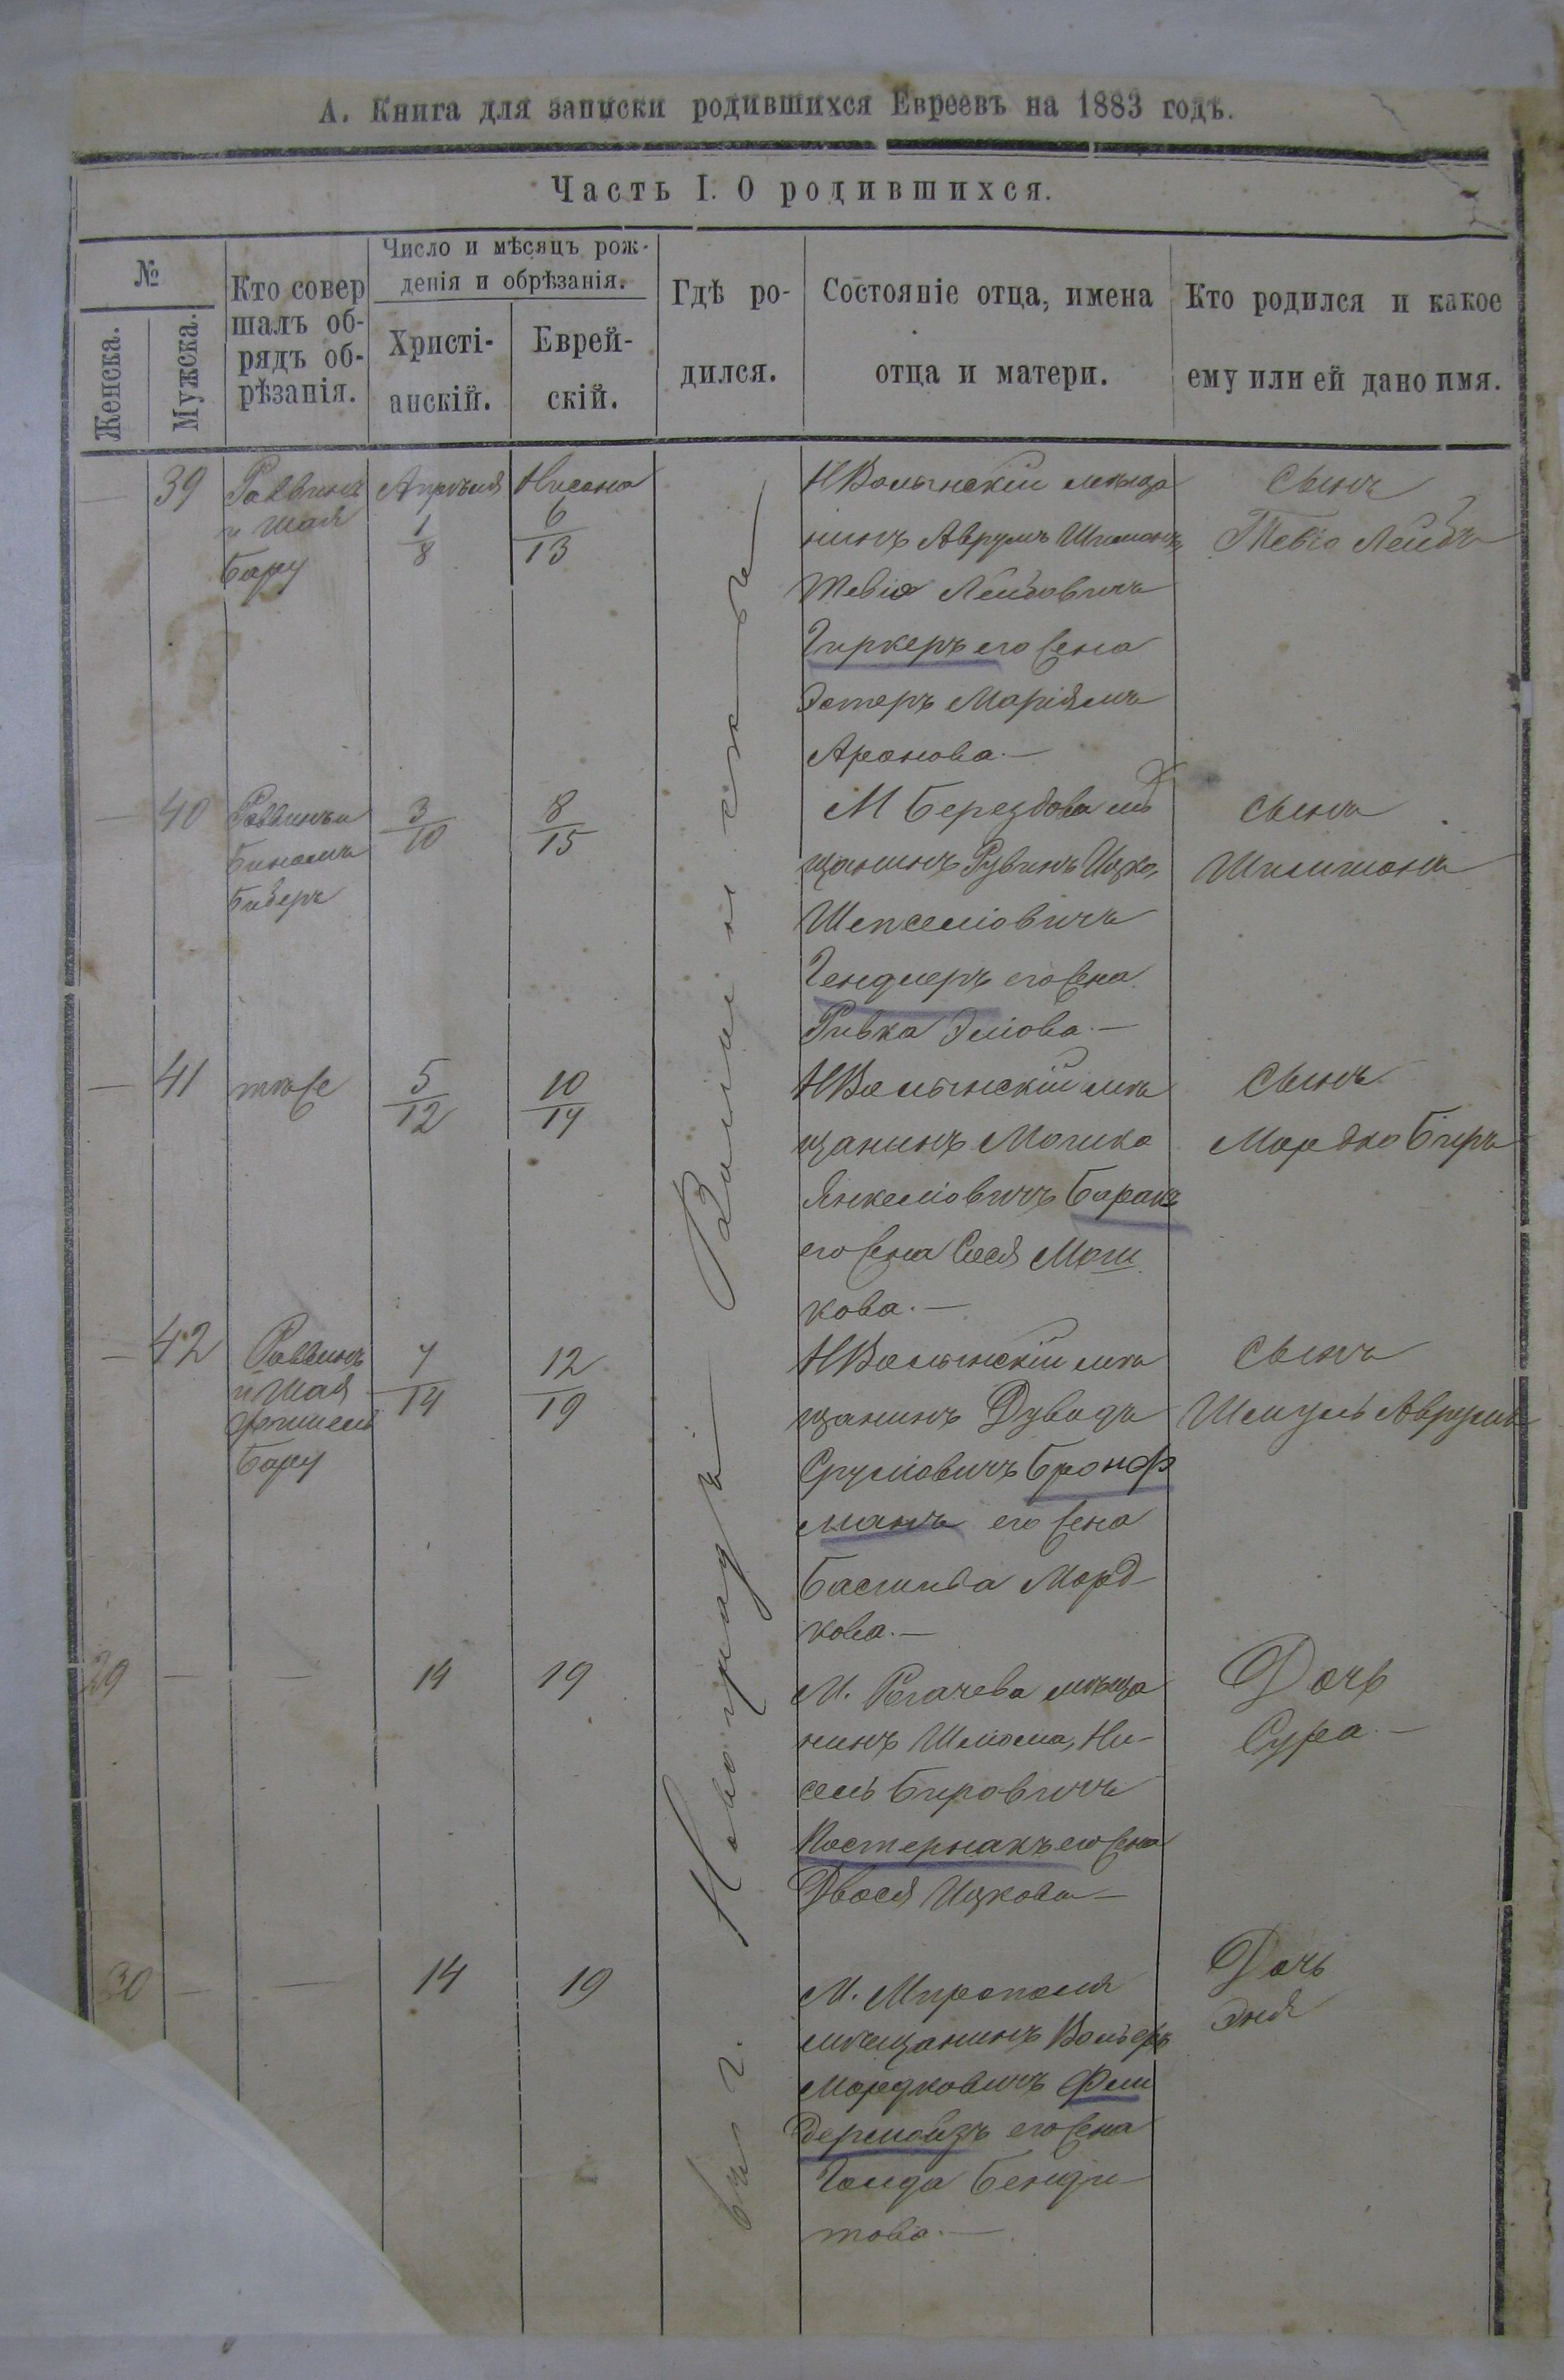 А. Книга для записки родившихся Евреевъ на 1883 годъ.
Часть I. О родившихся.
№
Женска.
Мужска.
Кто совер
шалъ об-
рядъ об-
рѣзанія.
Число и мѣсяцъ рож-
денія и обрѣзанія.
Христі-
анскій.
Еврей-
скій.
Гдѣ ро-
дился.
Состояніе отца, имена
отца и матери.
Кто родился и какое
ему или ей дано имя.
въ г. Новоградѣ Волынскѣ
— 39
Раввинъ
и Шая
Бару
Апрѣля
1
8
Нисона
6
13
НВолынскій мѣща
нинъ Аврумъ Шимонъ
Тевіо Лейбовичъ
Чиркеръ его жена
Эстеръ Маріямъ
Аронова.—
Сынъ
Тевіо Лейбъ
— 40
Раввинъ и
Биномъ
Биберъ
3
10
8
15
М Берездова мѣ
щанинъ Рувинъ Ицко,
Шепселіовичъ
Гендлеръ его жена
Ривка Эліова.—
сынъ
Шлимона
— 41
тѣже
5
12
10
17
НВолынскій мѣ
щанинъ Мошко
Янкеліовичъ Баракъ
его жена Сося Мош
кова.—
сынъ
Мордко Беръ
— 42
Раввинъ
и Шая
Бару
7
14
12
19
НВолынскій мѣ
щанинъ Дувидъ
Сруліовичъ Бронф
манъ его жена
Басшива Морд-
кова.—
сынъ
Шмуль Аврумъ
29 — —
14
19
М. Рогачева мѣща
нинъ Шліома, Ни-
сель Беровичъ
Постернакъ его жена
Двося Ицкова—
Дочь
Сура.—
30 — —
14
19
М. Мирополя
мѣщанинъ Вольфъ
Мордковичъ Фли
дермойзъ его жена
Голда Бенди-
това.—
Дочь
Эня